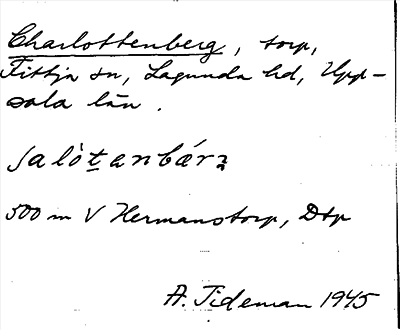 Charlottenberg, torp,
Fittja sn, Lagunda hd, Upp-
sala län.
ʃalòt̠anbárꝛ
500 m V Hermanstorp, Dtp
A. Tideman 1945